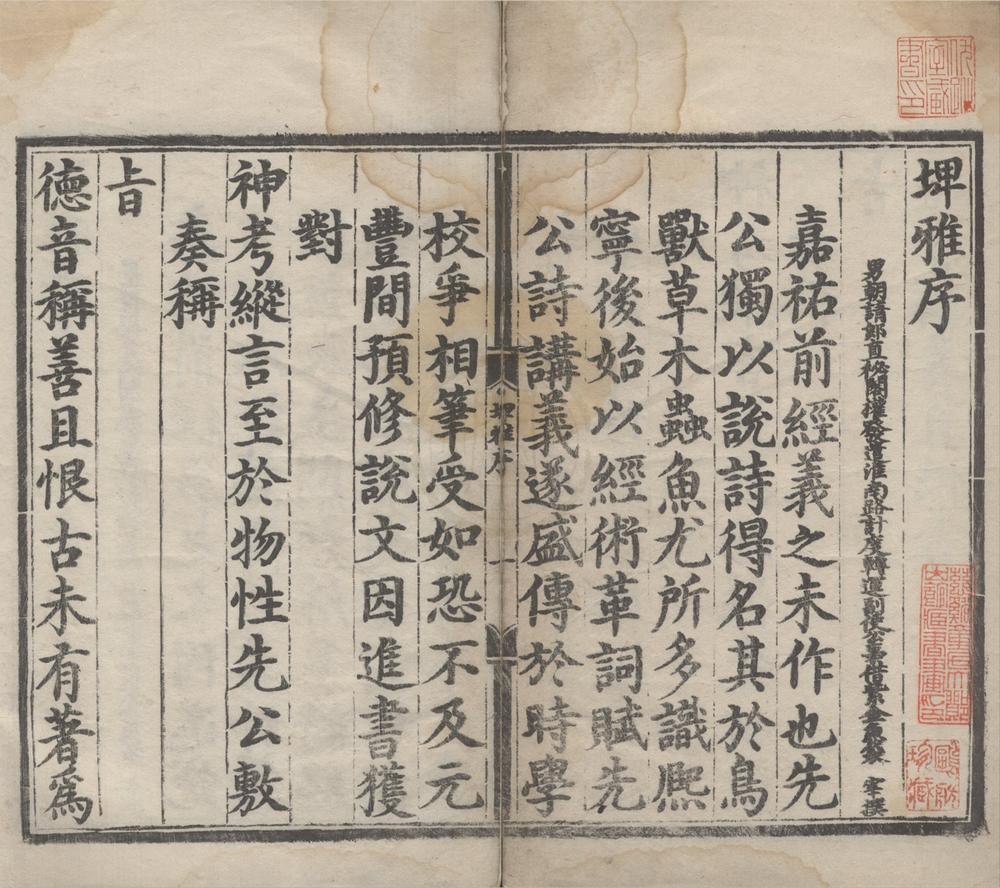 埤雅序
男朝請郎直秘閣權發遣淮南路計度轉運副使公事借紫金魚袋 宰撰
嘉祐前經義之未作也先
公獨以說詩得名其於鳥
獸草木蟲魚尤所多識熈
寧後始以經術革詞賦先
公詩講義遂盛傳於時學
埤雅序 一
校爭相筆受如恐不及元
豐間預修說文因進書獲
對
神考縱言至於物性先公敷
奏稱
旨
德音稱善且恨古未有著爲